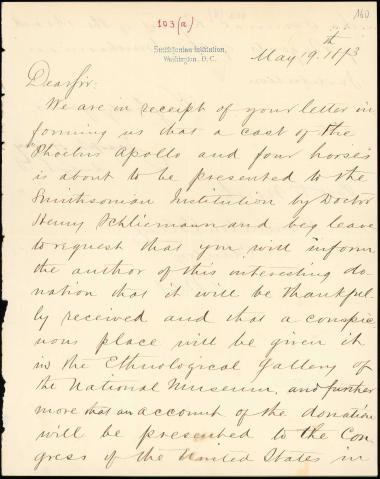 103(a)
160
Smithsonian Institution,
Washington, D.C.
May 19th 1873
Dear Sir:
We are in receipt of your letter in
forming us that a cast of the
Phoebus Apollo and four horses
is about to be presented to the
Smithsonian Institution by Doctor
Henry Schliemann and beg leave
to request that you will inform
the author of this interesting do
nation that it will be thankful-
ly received and that a conspic
uous place will be given it
in the Ethnological Gallery of
the National Museum, and further
more that an account of the donation
will be presented to the Con
gress of the United States in